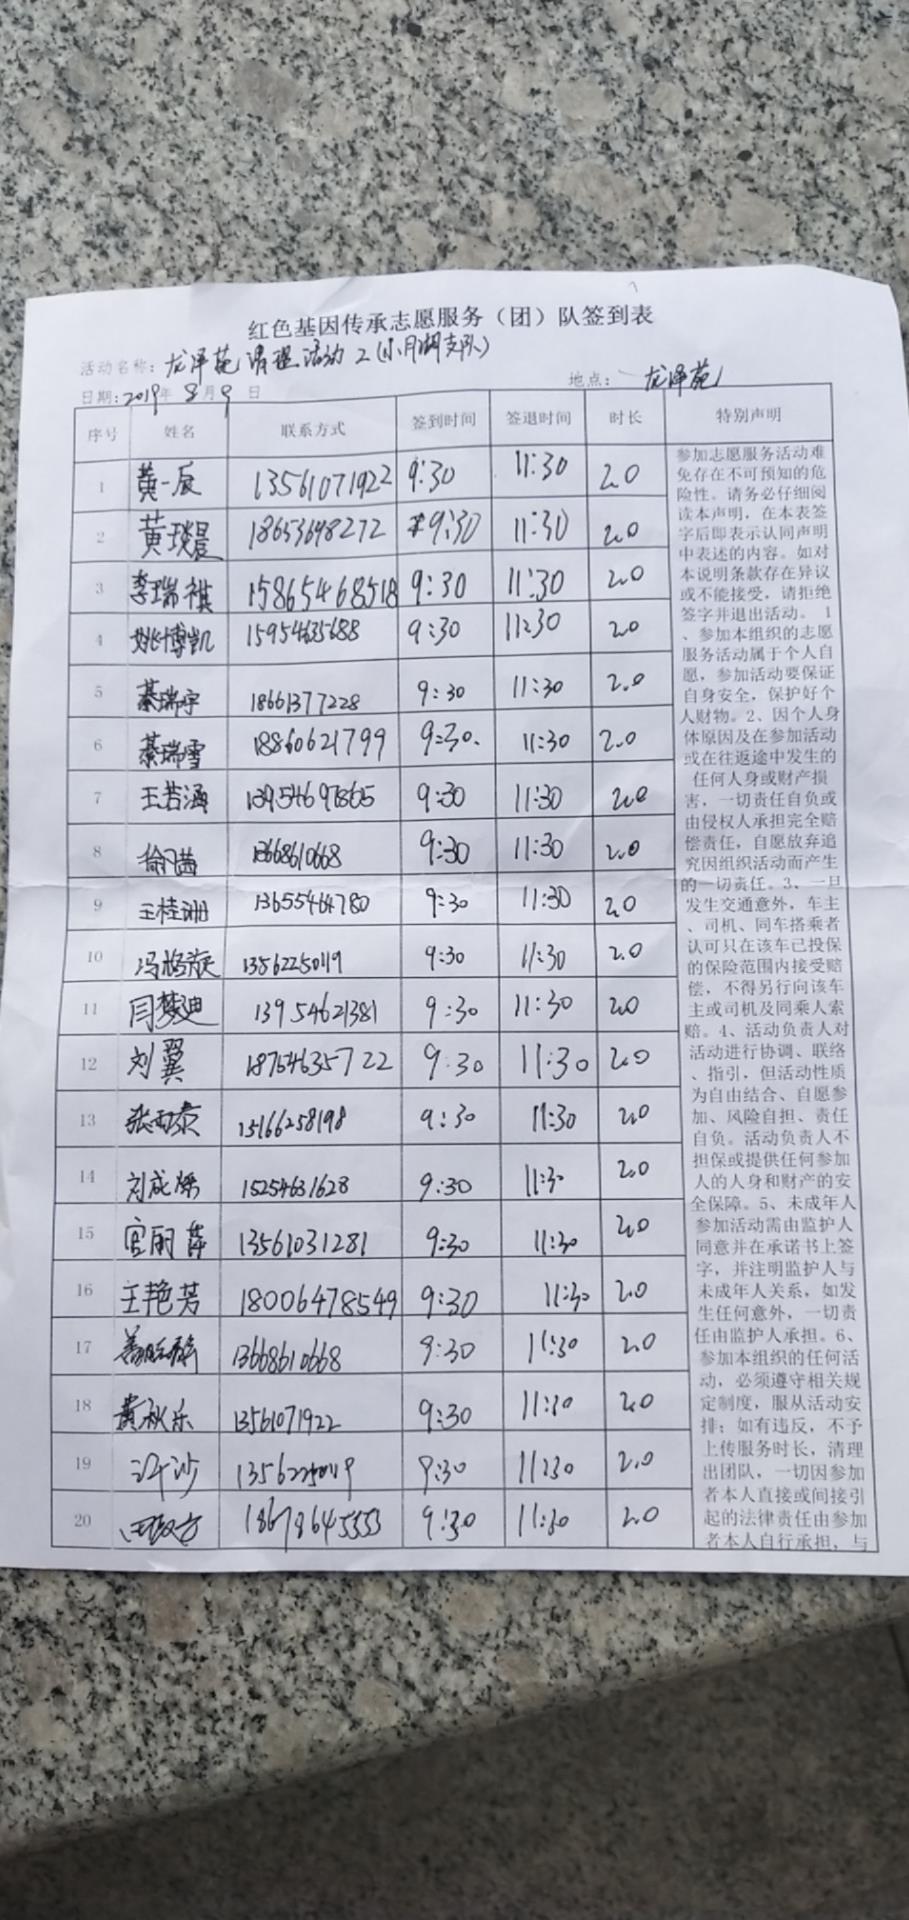 红色基因传承志愿服务（团）队签到表
活动名称：龙泽苑清理活动2（小月湖支队）
日期：2019年8月9日 地点：龙泽苑
序号 姓名 联系方式 签到时间 签退时间 时长 特别声明
1 黄一辰 13561071922 9:30 11:30 2.0
2 黄琰晨 18653698272 9:30 11:30 2.0
3 李瑞祺 15865468518 9:30 11:30 2.0
4 姚博凯 15954635688 9:30 11:30 2.0
5 綦瑞宇 18661377228 9:30 11:30 2.0
6 綦瑞雪 18860621799 9:30. 11:30 2.0
7 王若涵 13954697865 9:30 11:30 2.0
8 13668610668 9:30 11:30 2.0
9 王桂珊 13655464780 9:30 11:30 2.0
10 冯 9:30 11:30 2.0
11 闫梦迪 13954621381 9:30 11:30 2.0
12 刘翼 18754635722 9:30 11:30 2.0
13 张雨泰 9:30 11:30 2.0
14 刘成 15254631628 9:30 11:30 2.0
15 官丽萍 13561031281 9:30 11:30 2.0
16 王艳芳 18006478549 9:30 11:30 2.0
17 13668610668 9:30 11:30 2.0
18 黄秋乐 13561071922 9:30 11:30 2.0
19 9:30 11:30 2.0
20 田 18678645553 9:30 11:30 2.0
参加志愿服务活动难
免存在不可预知的危
险性。请务必仔细阅
读本声明，在本表签
字后即表示认同声明
中表述的内容。如对
本说明条款存在异议
或不能接受，请拒绝
签字并退出活动。1
、参加本组织的志愿
服务活动属于个人自
愿，参加活动要保证
自身安全，保护好个
人财物。2、因个人身
体原因及在参加活动
或在往返途中发生的
任何人身或财产损
害，一切责任自负或
由侵权人承担完全赔
偿责任，自愿放弃追
究因组织活动而产生
的一切责任。3、一旦
发生交通意外，车主
、司机、同车搭乘者
认可只在该车已投保
的保险范围内接受赔
偿，不得另行向该车
主或司机及同乘人索
赔。4、活动负责人对
活动进行协调、联络
、指引，但活动性质
为自由结合、自愿参
加、风险自担、责任
自负。活动负责人不
担保或提供任何参加
人的人身和财产的安
全保障。5、未成年人
参加活动需由监护人
同意并在承诺书上签
字，并注明监护人与
未成年人关系，如发
生任何意外，一切责
任由监护人承担。6、
参加本组织的任何活
动，必须遵守相关规
定制度，服从活动安
排；如有违反，不予
上传服务时长，清理
出团队，一切因参加
者本人直接或间接引
起的法律责任由参加
者本人自行承担，与